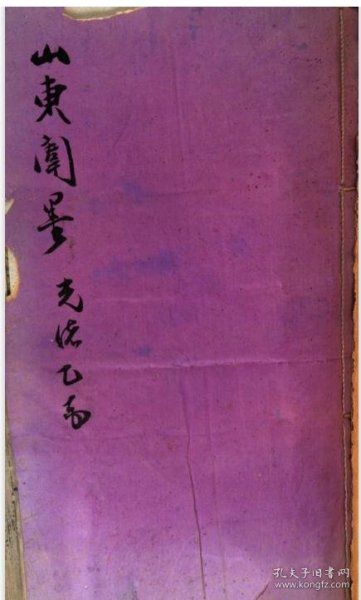 山東闈墨
光緒乙
孔夫子旧书网
www.kongfz.com